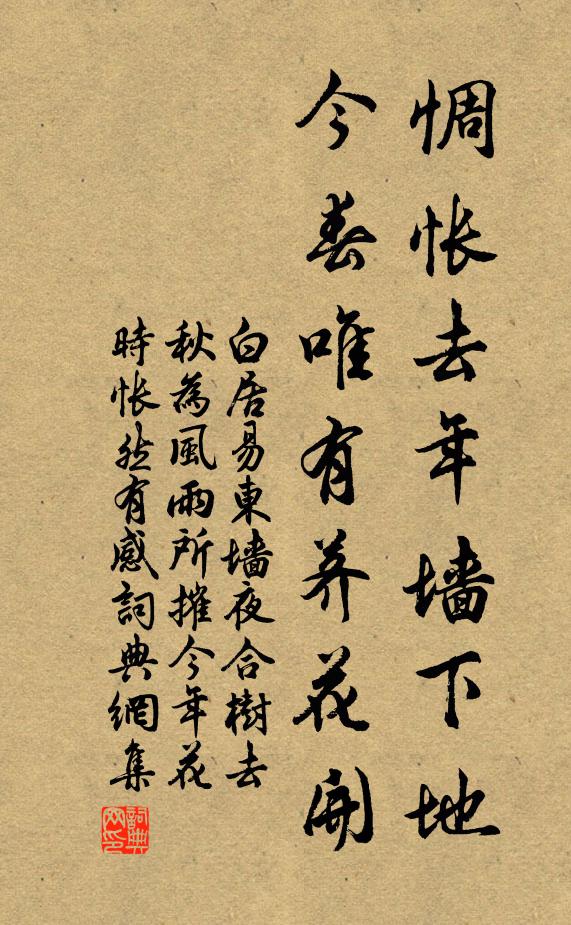 惆悵去年墙下地
今春唯有荠花開
白居易東墙夜合樹去
秋為風雨所摧今年花
時悵然有感詞典網集
詞典网印